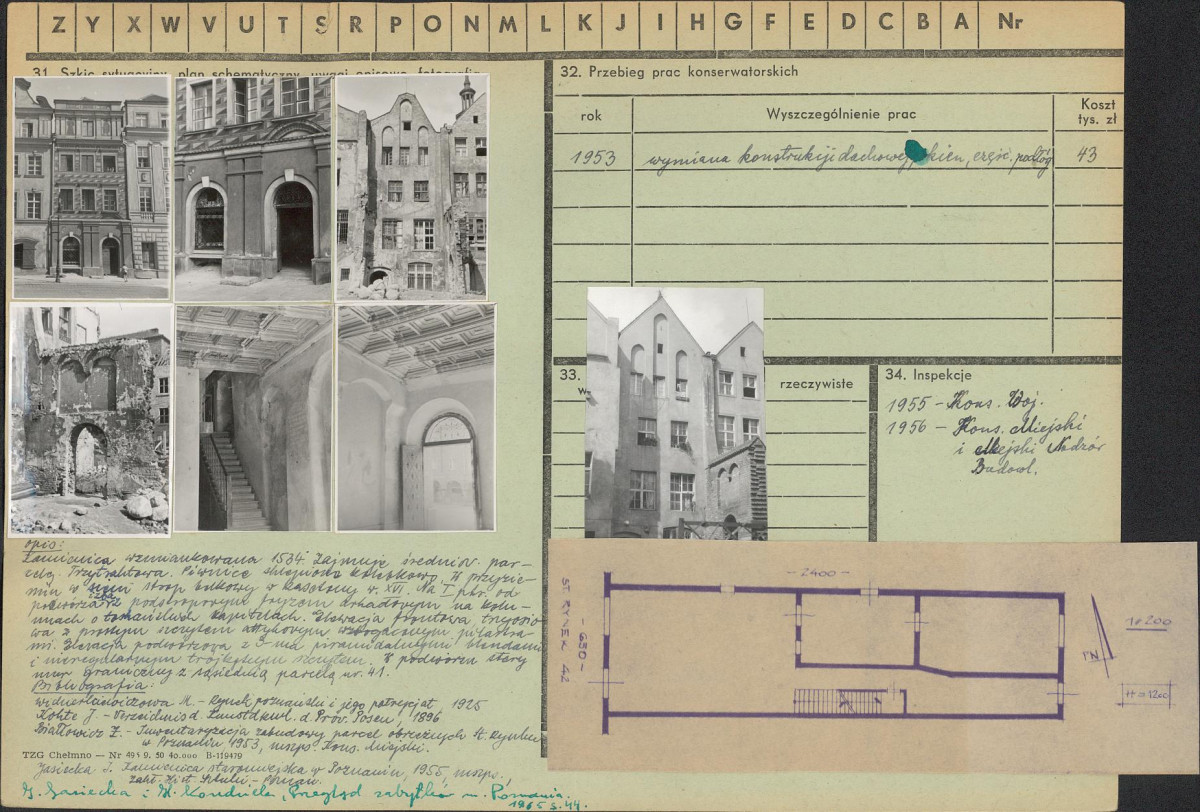 Z Y X W V U T S R P O N M L K J I H G F E D C B A Nr
31. Szkic sytuacyjny, plan schematyczny, uwagi opisowe, fotografie
32. Przebieg prac konserwatorskich
rok Wyszczególnienie prac Koszt tys. zł
1953 wymiana konstrukcji dachowej, okien, część. podłóg 43
33.
rzeczywiste
34. Inspekcje
1955 – Kons. Woj.
1956 – Kons. Miejski
i Miejski Nadzór
Budowl.
opis:
Kamienica wzmiankowana 1534. Zajmuje średniow. par-
celę. Trzytraktowa. Piwnice sklepione kolebkowo. W przyzie-
miu w sieni strop belkowy w kasetony w. XVI. Na I ptr. od
podwórza izba z podstropowym fryzem arkadowym na kolu-
mnach o toskańskich kapitelach. Elewacja frontowa trzyosio-
wa z prostym szczytem attykowym wzbogaconym pilastra-
mi. Elewacja podwórzowa z 3-ma piramidalnymi blendami
i nieregularnym trójkątnym szczytem. W podwórzu stary
mur graniczny z sąsiednią parcelą nr. 41.
Bibliografia:
M. – Rynek poznański i jego patrycjat, 1925
Kohte J. – Verzeichnis d. Kunstdkml. d. Prov. Posen, 1896
Białłowicz Z. – Inwentaryzacja zabudowy parcel obrzeżnych St. Rynku
w Poznaniu 1953, mszps Kons. Miejski.
TZG Chełmno – Nr 495 9. 50 40.000 B-119479
Jasiecka I. Kamienica staromiejska w Poznaniu, 1955, mszps,
Zakł. Hist. Sztuki – Poznań.
G. Gasiecka i H. Kondziela, Przegląd zabytków m. Poznania
1965 s. 44.
ST RYNEK 42
– 650 –
– 2400 –
1:200
H = 1200